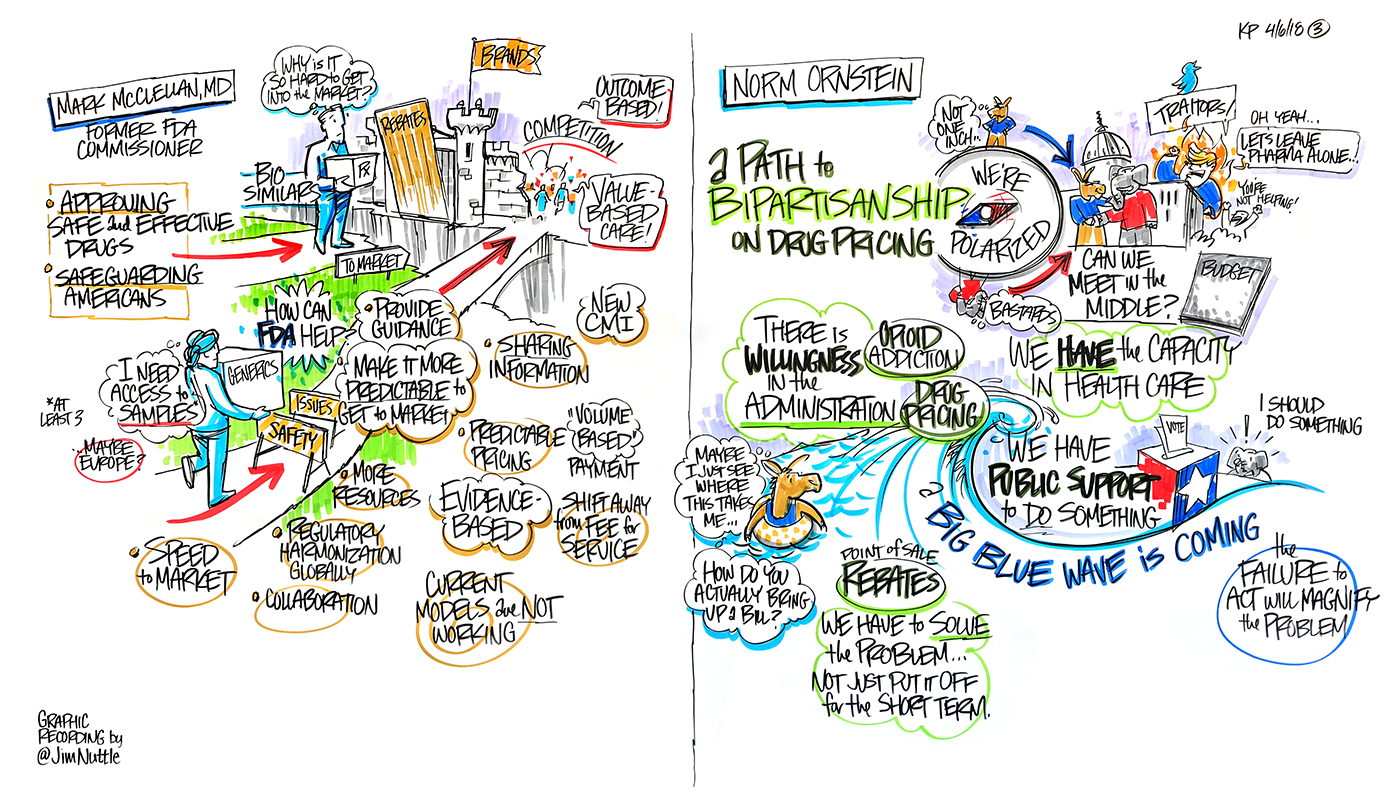 KP 4/6/18 ③
MARK McCLELLAN, MD
FORMER FDA
COMMISSIONER
• APPROVING
SAFE and EFFECTIVE
DRUGS
• SAFEGUARDING
AMERICANS
WHY is IT
SO HARD to GET
INTO the MARKET?
BRANDS
REBATES
BIO
SIMILARS
RX
TO MARKET
COMPETITION
OUTCOME
BASED!
VALUE-
BASED
CARE!
HOW CAN
FDA HELP?
• PROVIDE
GUIDANCE
MAKE IT MORE
PREDICTABLE to
GET to MARKET
• SHARING
INFORMATION
NEW
CMI
I NEED
ACCESS to
SAMPLES
*AT
LEAST 3
...MAYBE
EUROPE?
GENERICS
ISSUES
SAFETY
• PREDICTABLE
PRICING
"VOLUME
(BASED)"
PAYMENT
• MORE
RESOURCES
EVIDENCE-
BASED
SHIFT AWAY
from FEE for
SERVICE
• SPEED
to MARKET
• REGULATORY
HARMONIZATION
GLOBALLY
• COLLABORATION
CURRENT
MODELS are NOT
WORKING
GRAPHIC
RECORDING by
@JimNuttle
NORM ORNSTEIN
a PATH to
BIPARTISANSHIP
ON DRUG PRICING
NOT
ONE
INCH...
WE'RE
POLARIZED
BASTARDS
TRAITORS!
OH YEAH...
LETS LEAVE
PHARMA ALONE...
YOU'RE
NOT HELPING!
CAN WE
MEET in the
MIDDLE?
BUDGET
THERE is
WILLINGNESS
IN the
ADMINISTRATION
OPIOID
ADDICTION
DRUG
PRICING
WE HAVE the CAPACITY
IN HEALTH CARE
WE HAVE
PUBLIC SUPPORT
to DO SOMETHING
VOTE
!
I SHOULD
DO SOMETHING
MAYBE
I JUST SEE
WHERE
THIS TAKES
ME...
a BIG BLUE WAVE is COMING
HOW DO YOU
ACTUALLY BRING
UP a BILL?
POINT of SALE
REBATES
WE HAVE to SOLVE
the PROBLEM...
NOT JUST PUT IT OFF
for the SHORT TERM.
the
FAILURE to
ACT WILL MAGNIFY
the PROBLEM